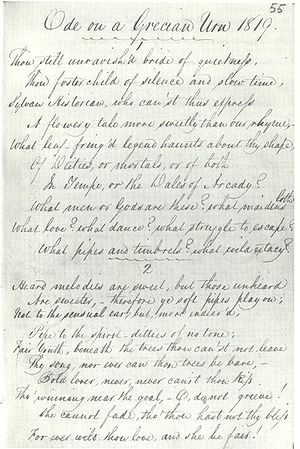 55
Ode on a Grecian Urn 1819.
1
Thou still unravish'd bride of quietness,
Thou foster child of silence and slow time,
Sylvan Historian, who can'st thus express
A flowery tale more sweetly than our rhyme,—
What leaf-fring'd legend haunts about thy shape
Of Deities, or mortals, or of both
In Tempe, or the Dales of Arcady?
What men or Gods are these? what maidens loth?
What love? what dance? what struggle to escape?
What pipes and timbrels? what wild extacy?
2
Heard melodies are sweet, but those unheard
Are sweeter,— therefore ye soft pipes play on;
Not to the sensual ear, but, more endear'd,
Pipe to the spirit—ditties of no tone;
Fair Youth, beneath the trees thou can'st not leave
Thy song, nor ever can those trees be bare,—
Bold lover, never, never can'st thou kiss
Tho' winning near the goal,—O, do not grieve!
She cannot fade, tho' thou hast not thy bliss
For ever wilt thou love, and she be fair.